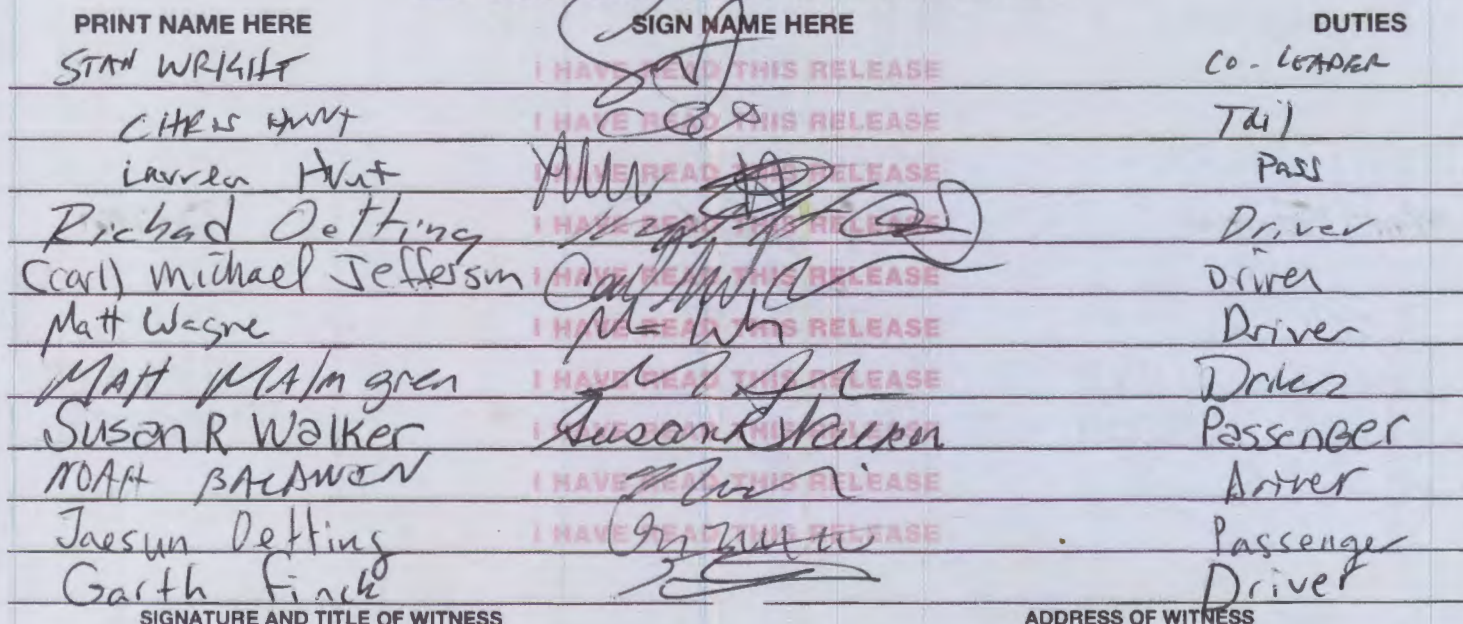 PRINT NAME HERE SIGN NAME HERE DUTIES
STAN WRIGHT I HAVE READ THIS RELEASE CO-LEADER
CHRIS HUNT I HAVE READ THIS RELEASE Tail
Lauren Hunt I HAVE READ THIS RELEASE Pass
Richad Oetting I HAVE READ THIS RELEASE Driver
(Carl) Michael Jefferson I HAVE READ THIS RELEASE Driver
Matt Wagne I HAVE READ THIS RELEASE Driver
MATT MALmgren I HAVE READ THIS RELEASE Driver
Susan R Walker I HAVE READ THIS RELEASE Susan R Walker PassenGer
NOAH BALDWIN I HAVE READ THIS RELEASE Driver
Jaesun Oetting I HAVE READ THIS RELEASE Passenger
Garth Finck Driver
SIGNATURE AND TITLE OF WITNESS ADDRESS OF WITNESS